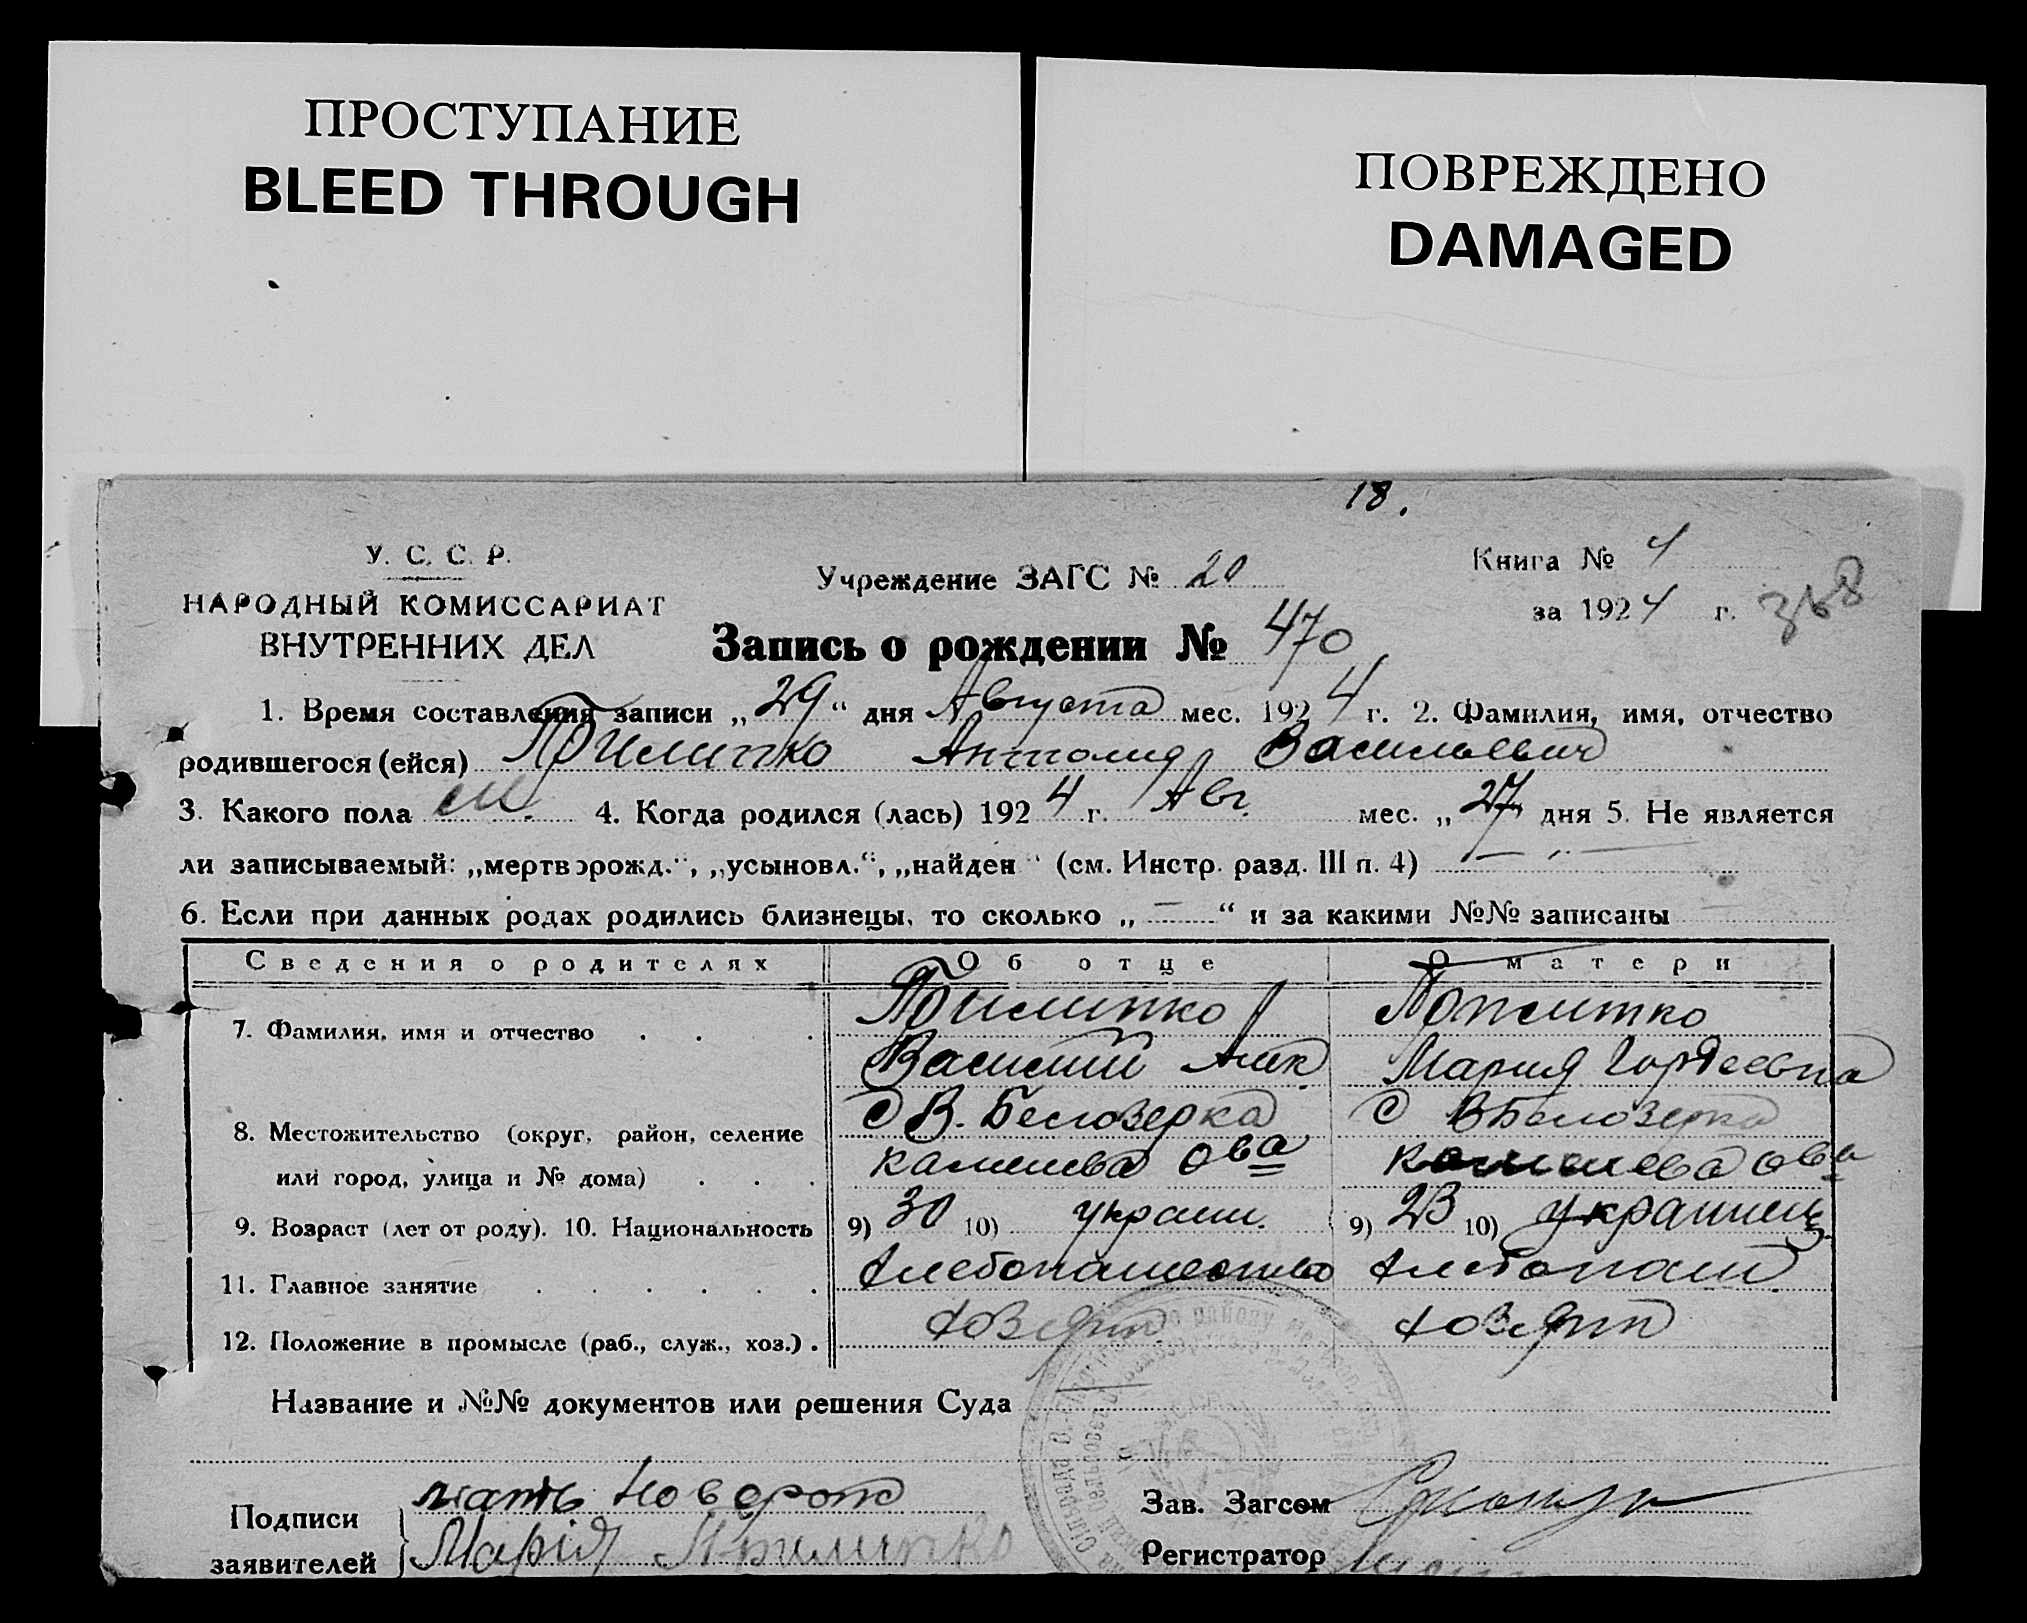 ПРОСТУПАНИЕ
BLEED THROUGH
ПОВРЕЖДЕНО
DAMAGED
18.
У. С. С. Р.
НАРОДНЫЙ КОМИССАРИАТ
ВНУТРЕННИХ ДЕЛ
Учреждение ЗАГС № 20
Книга № 4
за 1924 г. 368
Запись о рождении № 470
1. Время составления записи „29“ дня Августа мес. 1924 г. 2. Фамилия, имя, отчество
родившегося (ейся) Прилипко Антолид Васильевич
3. Какого пола м. 4. Когда родился (лась) 1924 г. Авг. мес. „27 дня 5. Не является
ли записываемый: „мертворожд.“, „усыновл.“, „найден“ (см. Инстр. разд. III п. 4) —
6. Если при данных родах родились близнецы, то сколько „ — “ и за какими №№ записаны —
Сведения о родителях Об отце О матери
7. Фамилия, имя и отчество Прилипко Прилипко
Василий Алек Мария Гордеевна
8. Местожительство (округ, район, селение с В. Белозерка с В Белозерка
или город, улица и № дома) ова ова
9. Возраст (лет от роду). 10. Национальность 9) 30 10) украин. 9) 23 10) украинец
11. Главное занятие хлебопашество хлебопаш
12. Положение в промысле (раб., служ., хоз.) хозяин хозяин
Название и №№ документов или решения Суда —
Подписи
заявителей
мать новорож
Марія Прилипко
Зав. Загсом
Регистратор